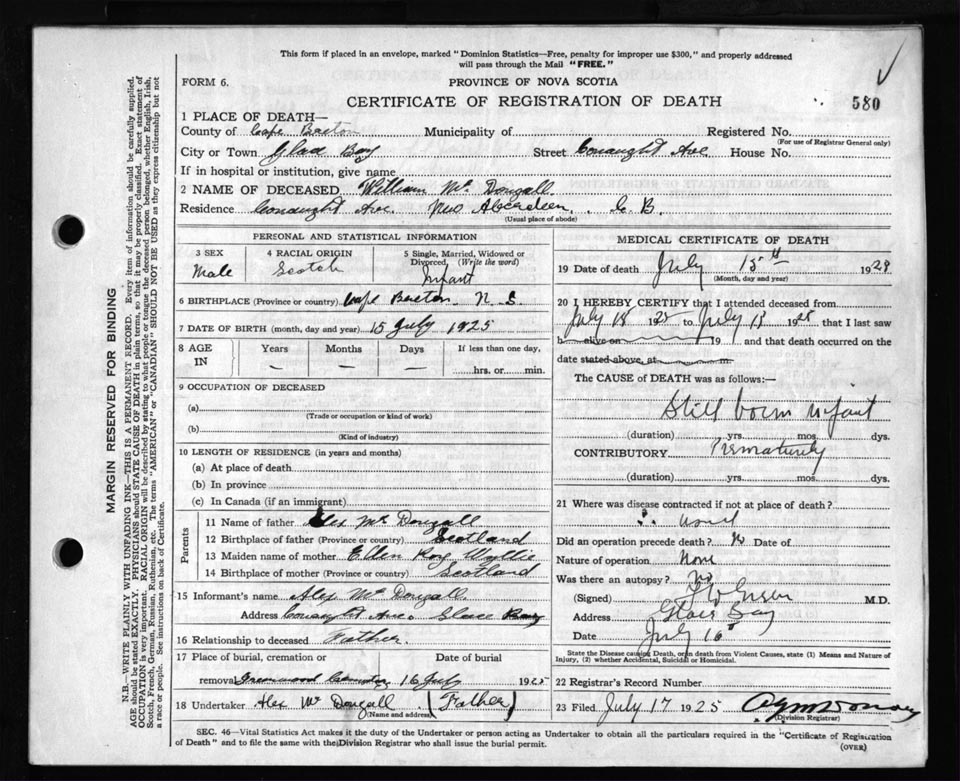 This form if placed in an envelope, marked "Dominion Statistics—Free, penalty for improper use $300," and properly addressed
will pass through the Mail "FREE."
FORM 6.
PROVINCE OF NOVA SCOTIA
CERTIFICATE OF REGISTRATION OF DEATH
580
1 PLACE OF DEATH—
County of Cape Breton Municipality of Registered No.
(For use of Registrar General only)
City or Town Glace Bay Street Conaught Ave House No.
If in hospital or institution, give name
2 NAME OF DECEASED William Mc Dougall
Residence Conaught Ave. New Aberdeen, C. B.
(Usual place of abode)
PERSONAL AND STATISTICAL INFORMATION
3 SEX
Male
4 RACIAL ORIGIN
Scotch
5 Single, Married, Widowed or
Divorced, (Write the word)
Infant
6 BIRTHPLACE (Province or country) Cape Breton, N. S.
7 DATE OF BIRTH (month, day and year) 15 July 1925
8 AGE
IN
Years
—
Months
—
Days
—
If less than one day,
hrs. or min.
9 OCCUPATION OF DECEASED
(a)
(Trade or occupation or kind of work)
(b)
(Kind of industry)
10 LENGTH OF RESIDENCE (in years and months)
(a) At place of death
(b) In province
(c) In Canada (if an immigrant)
Parents
11 Name of father Alex Mc Dougall
12 Birthplace of father (Province or country) Scotland
13 Maiden name of mother Ellen Roy Wyllie
14 Birthplace of mother (Province or country) Scotland
15 Informant's name Alex Mc Dougall.
Address Conaught Ave. Glace Bay
16 Relationship to deceased Father.
17 Place of burial, cremation or
removal Greenwood Cemetery
Date of burial
16 July 1925
18 Undertaker Alex Mc Dougall (Father)
(Name and address)
MEDICAL CERTIFICATE OF DEATH
19 Date of death July 15th 192
(Month, day and year)
20 I HEREBY CERTIFY that I attended deceased from
July 15 1925 to July 15 1925 that I last saw
h alive on 19 and that death occurred on the
date stated above, at m.
The CAUSE of DEATH was as follows:—
Still born infant
(duration) yrs. mos. dys.
CONTRIBUTORY Prematurity
(duration) yrs. mos. dys.
21 Where was disease contracted if not at place of death?
Did an operation precede death? No Date of
Nature of operation None
Was there an autopsy? No
(Signed) M.D.
Address Glace Bay
Date July 16
State the Disease causing Death, or in death from Violent Causes, state (1) Means and Nature of
Injury, (2) whether Accidental, Suicidal or Homicidal.
22 Registrar's Record Number
23 Filed July 17 1925
(Division Registrar)
SEC. 46—Vital Statistics Act makes it the duty of the Undertaker or person acting as Undertaker to obtain all the particulars required in the "Certificate of Registration
of Death" and to file the same with the Division Registrar who shall issue the burial permit.
(OVER)
MARGIN RESERVED FOR BINDING
N.B.—WRITE PLAINLY WITH UNFADING INK—THIS IS A PERMANENT RECORD. Every item of information should be carefully supplied.
AGE should be stated EXACTLY. PHYSICIANS should STATE CAUSE OF DEATH in plain terms, so that it may be properly classified. Exact statement of
OCCUPATION is very important. RACIAL ORIGIN will be described by stating to what people or tongue the deceased person belonged, whether English, Irish,
Scotch, French, German, Russian, Ruthenian, etc. The terms "AMERICAN" or "CANADIAN" SHOULD NOT BE USED as they express citizenship but not
a race or people. See instructions on back of Certificate.